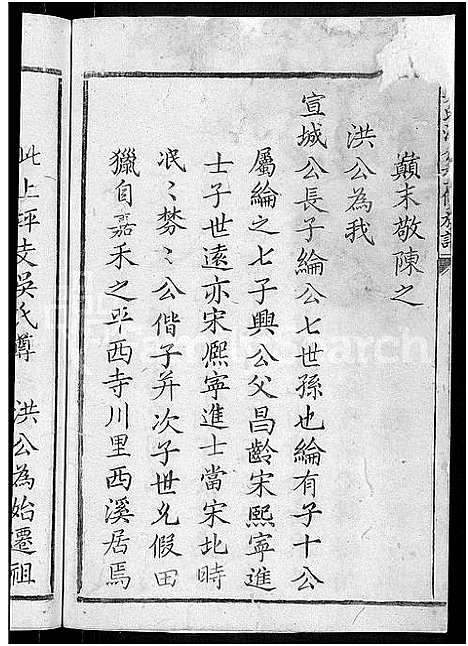 巔末敬陳之
洪公為我
宣城公長子綸公七世孫也綸有子十公
屬綸之七子興公父昌齡宋熙寧進
士子世遠亦宋熈寧進士當宋北時
泯〻棼〻公偕子并次子世允假田
獵自嘉禾之平西寺川里西溪居焉
此上坪支吳氏遵 洪公為始遷祖